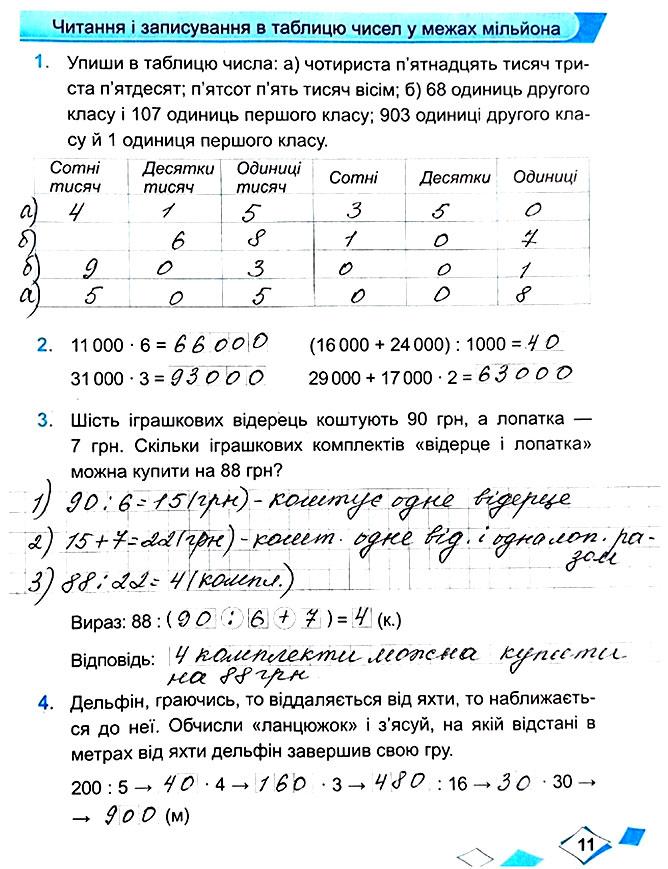 Читання і записування в таблицю чисел у межах мільйона
1. Упиши в таблицю числа: а) чотириста п'ятнадцять тисяч три-
ста п'ятдесят; п'ятсот п'ять тисяч вісім; б) 68 одиниць другого
класу і 107 одиниць першого класу; 903 одиниці другого кла-
су й 1 одиниця першого класу.
Сотні тисяч Десятки тисяч Одиниці тисяч Сотні Десятки Одиниці
а) 4 1 5 3 5 0
б) 6 8 1 0 7
б) 9 0 3 0 0 1
а) 5 0 5 0 0 8
2. 11 000 · 6 = 66000 (16 000 + 24 000) : 1000 = 40
31 000 · 3 = 93000 29 000 + 17 000 · 2 = 63000
3. Шість іграшкових відерець коштують 90 грн, а лопатка —
7 грн. Скільки іграшкових комплектів «відерце і лопатка»
можна купити на 88 грн?
1) 90 : 6 = 15 (грн) - коштує одне відерце
2) 15 + 7 = 22 (грн) - кошт. одне від. і одна лоп. ра-
зом
3) 88 : 22 = 4 (компл.)
Вираз: 88 : (90 : 6 + 7) = 4 (к.)
Відповідь: 4 комплекти можна купити
на 88 грн
4. Дельфін, граючись, то віддаляється від яхти, то наближаєть-
ся до неї. Обчисли «ланцюжок» і з'ясуй, на якій відстані в
метрах від яхти дельфін завершив свою гру.
200 : 5 → 40 · 4 → 160 · 3 → 480 : 16 → 30 · 30 →
→ 900 (м)
11